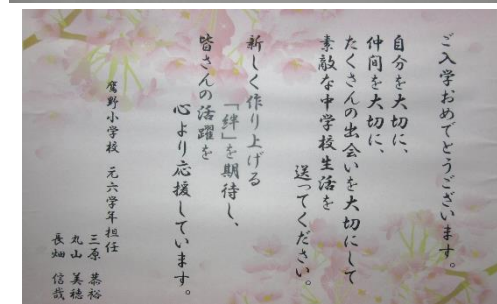 ご入学おめでとうございます。
自分を大切に、
仲間を大切に、
たくさんの出会いを大切にして
素敵な中学校生活を
送ってください。
新しく作り上げる
「絆」を期待し、
皆さんの活躍を
心より応援しています。
鷹野小学校 元六学年担任
三原 恭裕
丸山 美穂
長畑 信哉